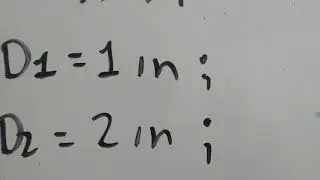 D1 = 1 in ;
D2 = 2 in ;